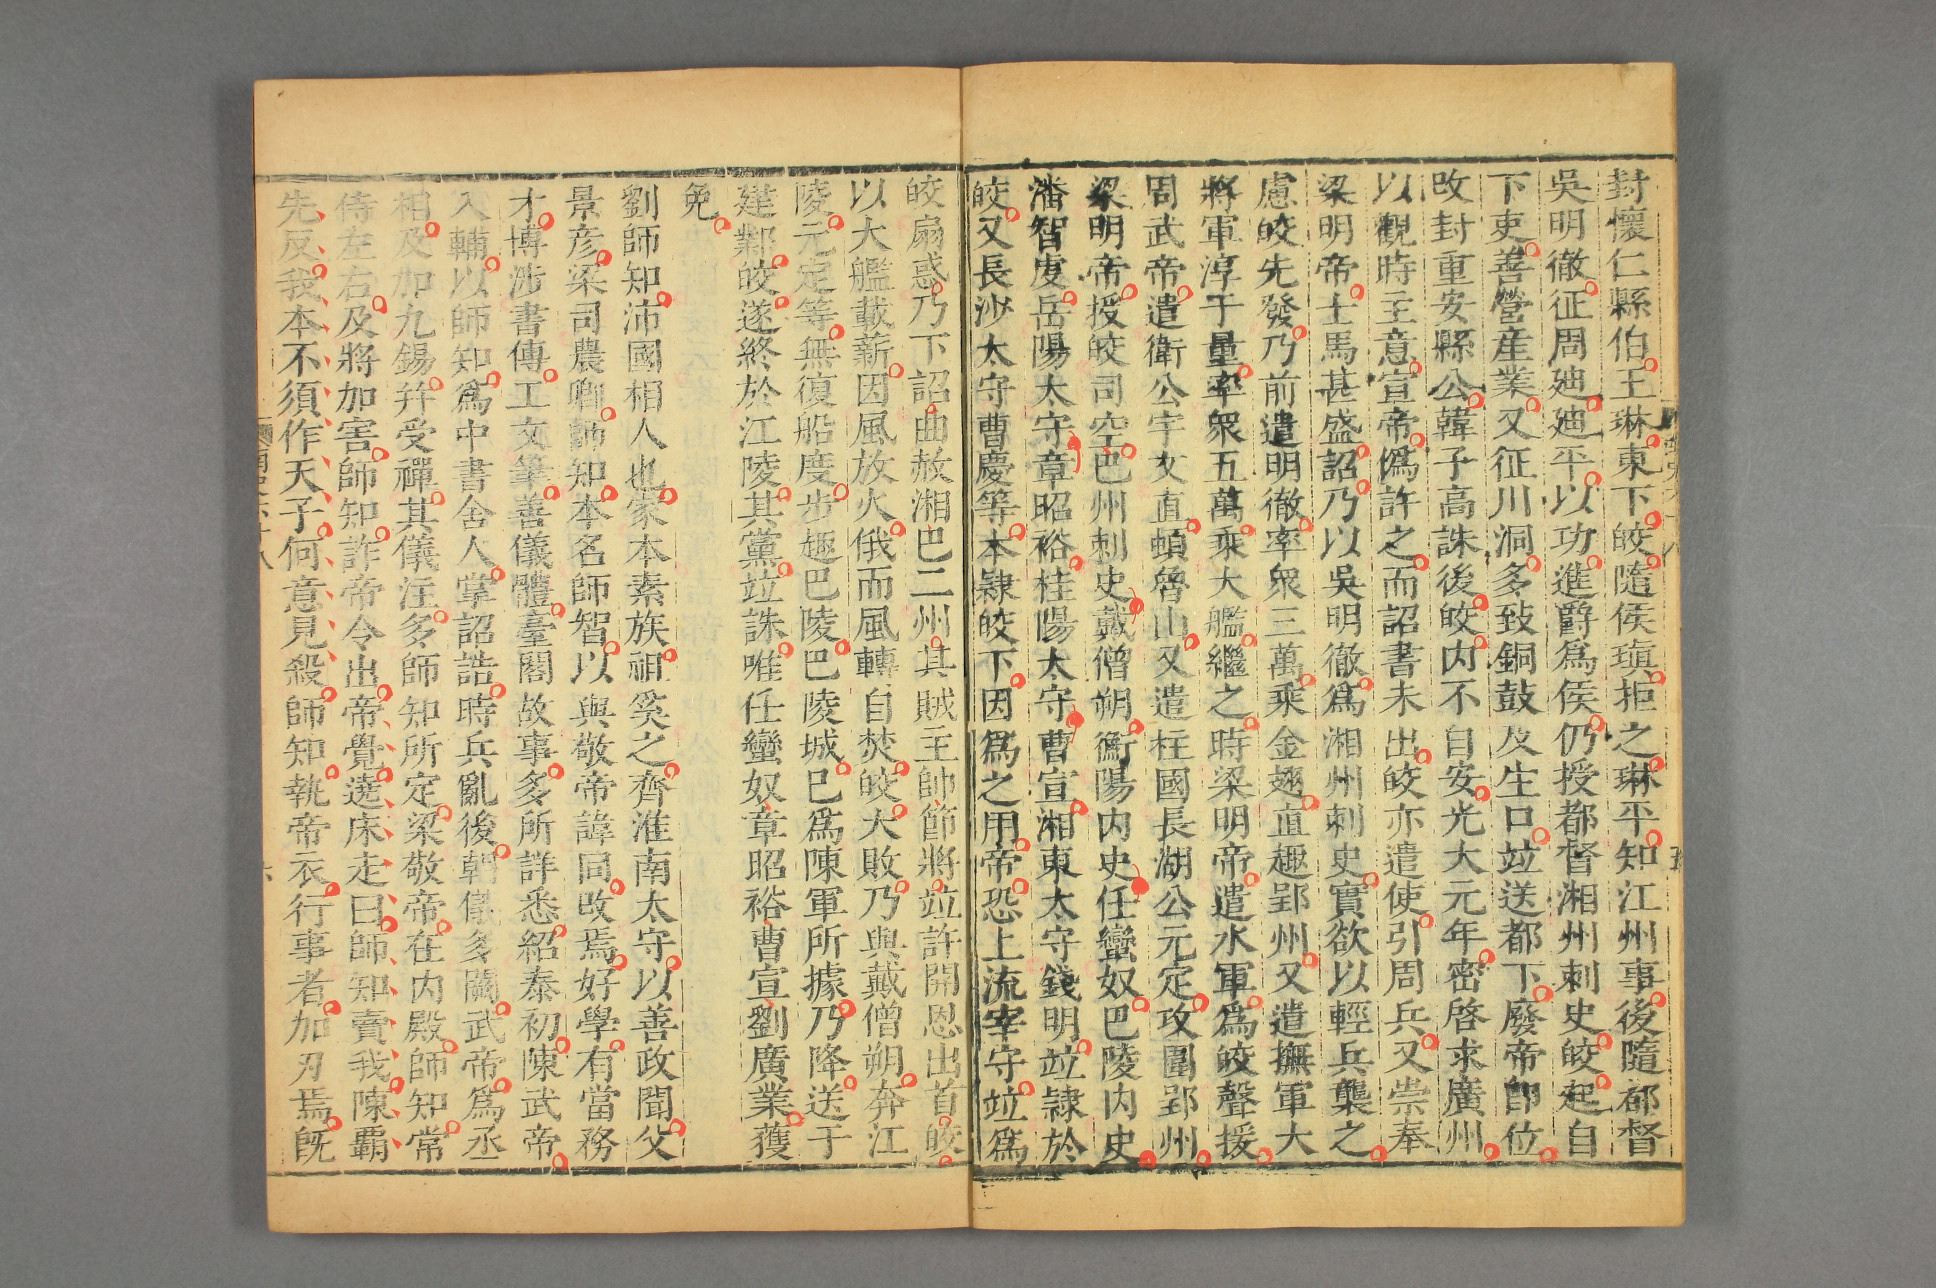 封懷仁縣伯王琳東下皎隨侯瑱拒之琳平知江州事後隨都督
吳明徹征周廸廸平以功進爵爲侯仍授都督湘州刺史皎起自
下吏善營産業又征川洞多致銅鼓及生口竝送都下廢帝卽位
改封重安縣公韓子高誅後皎内不自安光大元年密啓求廣州
以觀時主意宣帝僞許之而詔書未出皎亦遣使引周兵又崇奉
梁明帝士馬甚盛詔乃以吳明徹爲湘州刺史實欲以輕兵襲之
慮皎先發乃前遣明徹率衆三萬乘金翅直趣郢州又遣撫軍大
將軍淳于量率衆五萬乘大艦繼之時梁明帝遣水軍爲皎聲援
周武帝遣衛公宇文直頓魯山又遣柱國長湖公元定攻圍郢州
梁明帝授皎司空巴州刺史戴僧朔衡陽内史任蠻奴巴陵内史
潘智虔岳陽太守章昭裕桂陽太守曹宣湘東太守錢明竝隷於
皎又長沙太守曹慶等本隷皎下因爲之用帝恐上流宰守竝爲
皎扇惑乃下詔曲赦湘巴二州其賊主帥節將竝許開恩出首皎
以大艦載薪因風放火俄而風轉自焚皎大敗乃與戴僧朔奔江
陵元定等無復船度步趣巴陵巴陵城已爲陳軍所據乃降送于
建鄴皎遂終於江陵其黨竝誅唯任蠻奴章昭裕曹宣劉廣業獲
免
劉師知沛國相人也家本素族祖奚之齊淮南太守以善政聞父
景彦梁司農卿師知本名師智以與敬帝諱同改焉好學有當務
才博涉書傳工文筆善儀體臺閣故事多所詳悉紹泰初陳武帝
入輔以師知爲中書舍人掌詔誥時兵亂後朝儀多闕武帝爲丞
相及加九錫幷受禪其儀注多師知所定梁敬帝在内殿師知常
侍左右及將加害師知詐帝令出帝覺遶床走曰師知賣我陳覇
先反我本不須作天子何意見殺師知執帝衣行事者加刃焉旣